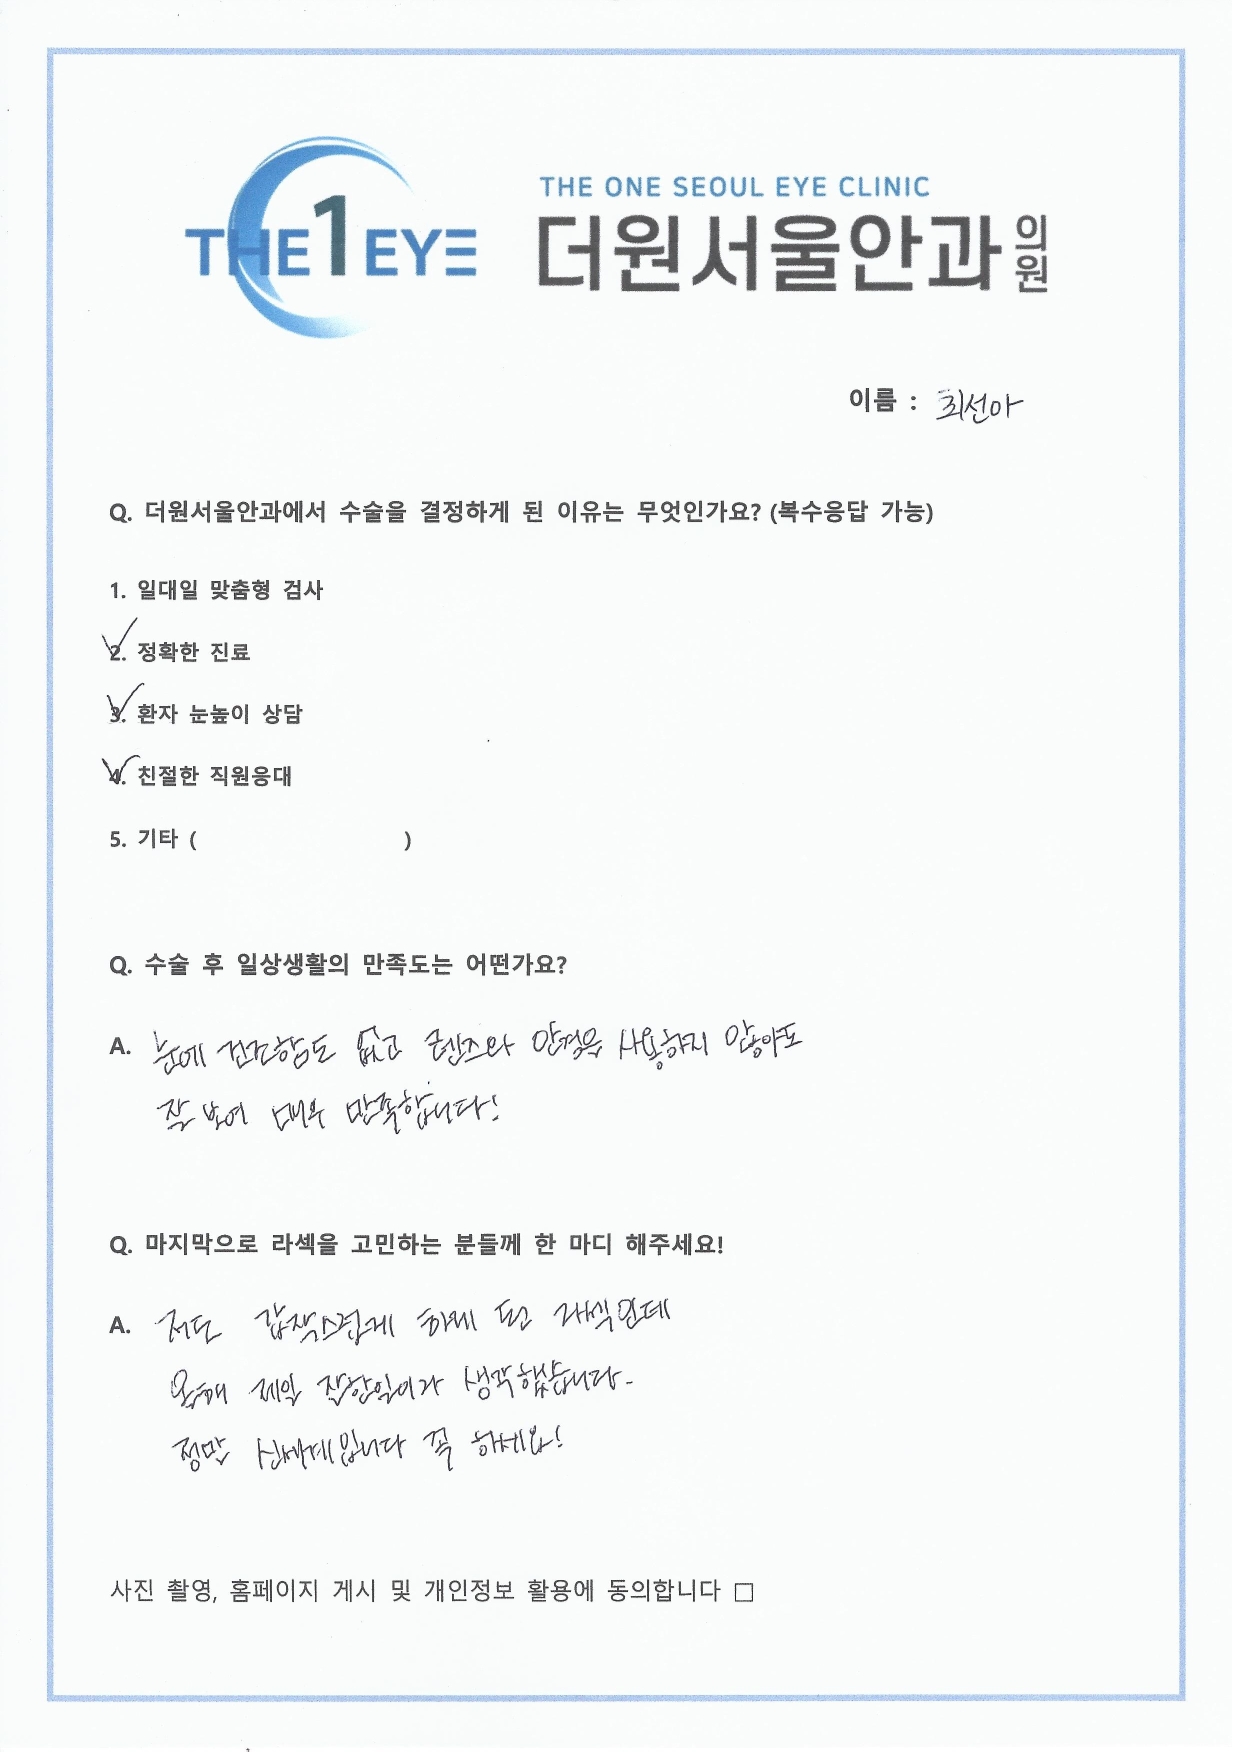 THE1EYE
THE ONE SEOUL EYE CLINIC
더원서울안과의원
이름 : 최선아
Q. 더원서울안과에서 수술을 결정하게 된 이유는 무엇인가요? (복수응답 가능)
1. 일대일 맞춤형 검사
2. 정확한 진료
3. 환자 눈높이 상담
4. 친절한 직원응대
5. 기타 ( )
Q. 수술 후 일상생활의 만족도는 어떤가요?
A. 눈에 건조함도 없고 렌즈와 안경을 사용하지 않아도
잘 보여 매우 만족합니다!
Q. 마지막으로 라섹을 고민하는 분들께 한 마디 해주세요!
A. 저도 갑작스럽게 하게 된 라섹인데
올해 제일 잘한일이라 생각했습니다.
정말 신세계입니다 꼭 하세요!
사진 촬영, 홈페이지 게시 및 개인정보 활용에 동의합니다 □